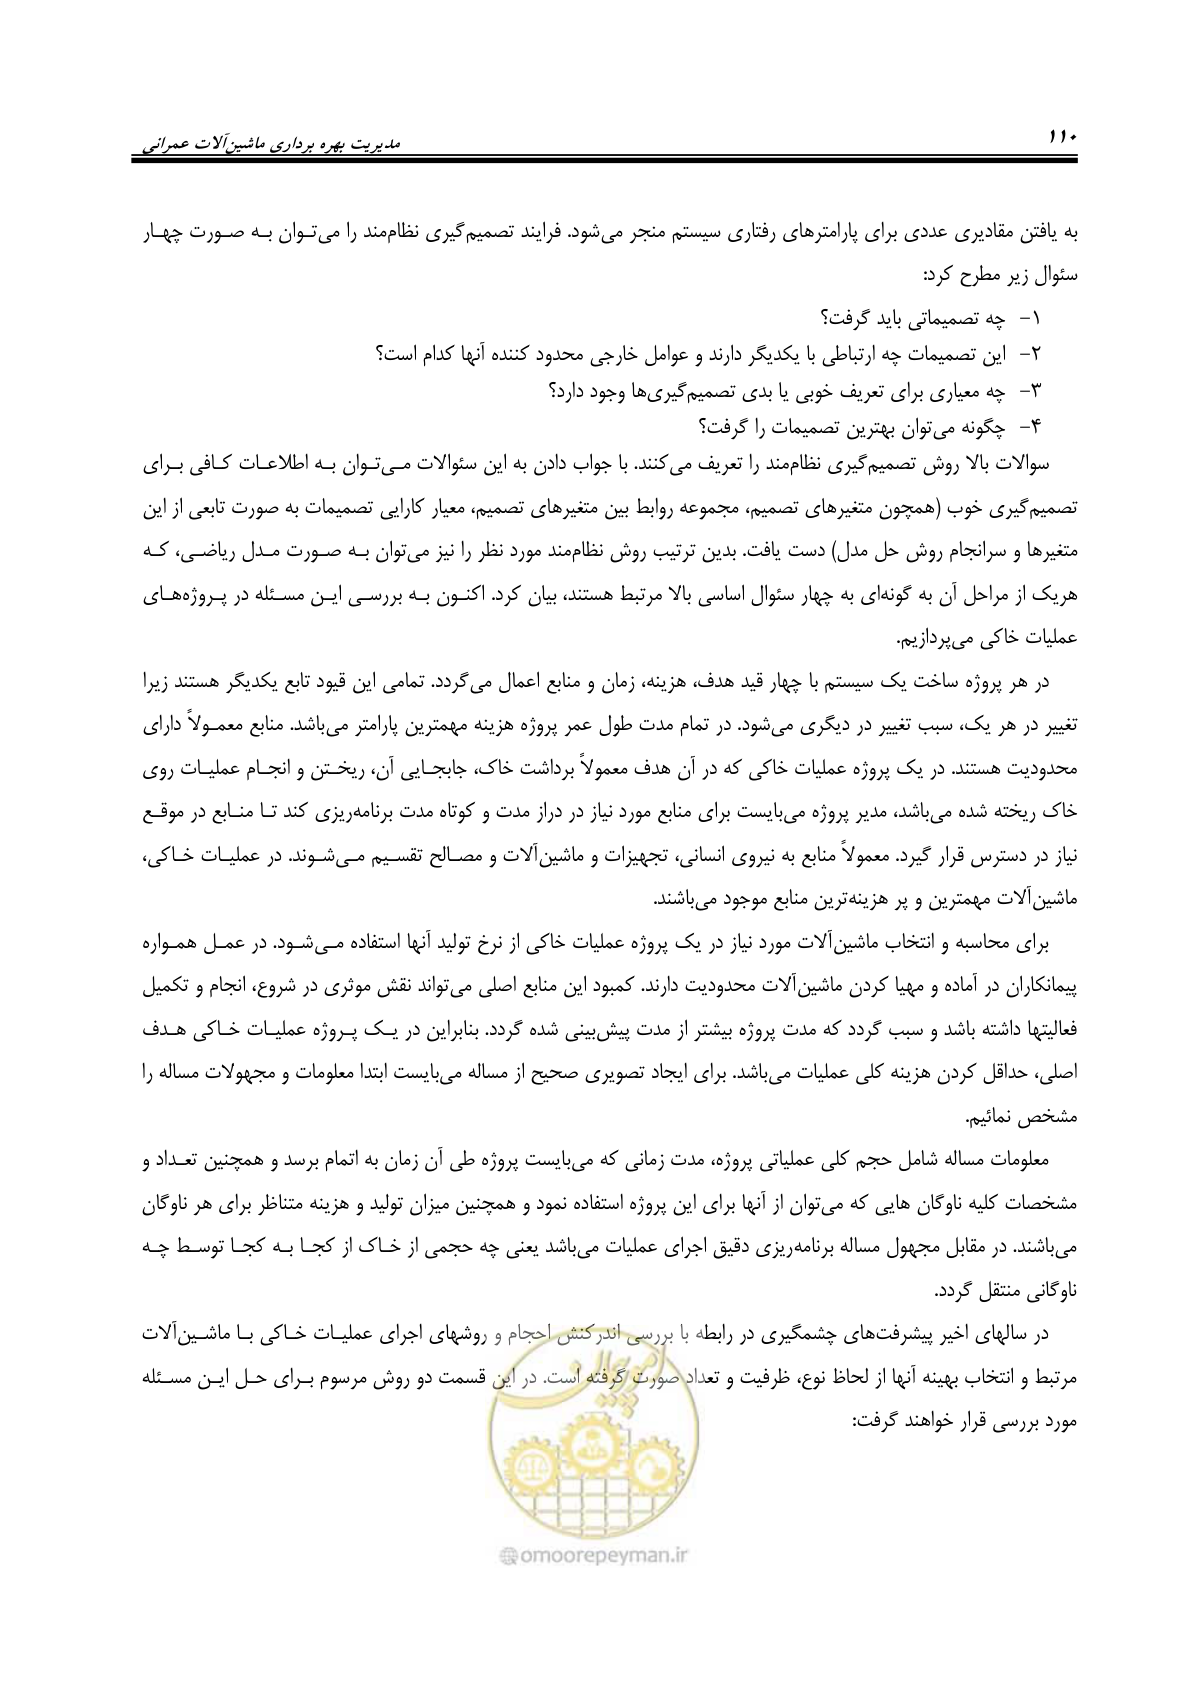 ۱۱۰
مدیریت بهره برداری ماشین‌آلات عمرانی
به یافتن مقادیری عددی برای پارامترهای رفتاری سیستم منجر می‌شود. فرایند تصمیم‌گیری نظام‌مند را می‌توان به صورت چهار
سئوال زیر مطرح کرد:
۱- چه تصمیماتی باید گرفت؟
۲- این تصمیمات چه ارتباطی با یکدیگر دارند و عوامل خارجی محدود کننده آنها کدام است؟
۳- چه معیاری برای تعریف خوبی یا بدی تصمیم‌گیری‌ها وجود دارد؟
۴- چگونه می‌توان بهترین تصمیمات را گرفت؟
سوالات بالا روش تصمیم‌گیری نظام‌مند را تعریف می‌کنند. با جواب دادن به این سئوالات می‌توان به اطلاعات کافی برای
تصمیم‌گیری خوب (همچون متغیرهای تصمیم، مجموعه روابط بین متغیرهای تصمیم، معیار کارایی تصمیمات به صورت تابعی از این
متغیرها و سرانجام روش حل مدل) دست یافت. بدین ترتیب روش نظام‌مند مورد نظر را نیز می‌توان به صورت مدل ریاضی، که
هریک از مراحل آن به گونه‌ای به چهار سئوال اساسی بالا مرتبط هستند، بیان کرد. اکنون به بررسی این مسئله در پروژه‌های
عملیات خاکی می‌پردازیم.
در هر پروژه ساخت یک سیستم با چهار قید هدف، هزینه، زمان و منابع اعمال می‌گردد. تمامی این قیود تابع یکدیگر هستند زیرا
تغییر در هر یک، سبب تغییر در دیگری می‌شود. در تمام مدت طول عمر پروژه هزینه مهمترین پارامتر می‌باشد. منابع معمولاً دارای
محدودیت هستند. در یک پروژه عملیات خاکی که در آن هدف معمولاً برداشت خاک، جابجایی آن، ریختن و انجام عملیات روی
خاک ریخته شده می‌باشد، مدیر پروژه می‌بایست برای منابع مورد نیاز در دراز مدت و کوتاه مدت برنامه‌ریزی کند تا منابع در موقع
نیاز در دسترس قرار گیرد. معمولاً منابع به نیروی انسانی، تجهیزات و ماشین‌آلات و مصالح تقسیم می‌شوند. در عملیات خاکی،
ماشین‌آلات مهمترین و پر هزینه‌ترین منابع موجود می‌باشند.
برای محاسبه و انتخاب ماشین‌آلات مورد نیاز در یک پروژه عملیات خاکی از نرخ تولید آنها استفاده می‌شود. در عمل همواره
پیمانکاران در آماده و مهیا کردن ماشین‌آلات محدودیت دارند. کمبود این منابع اصلی می‌تواند نقش موثری در شروع، انجام و تکمیل
فعالیتها داشته باشد و سبب گردد که مدت پروژه بیشتر از مدت پیش‌بینی شده گردد. بنابراین در یک پروژه عملیات خاکی هدف
اصلی، حداقل کردن هزینه کلی عملیات می‌باشد. برای ایجاد تصویری صحیح از مساله می‌بایست ابتدا معلومات و مجهولات مساله را
مشخص نمائیم.
معلومات مساله شامل حجم کلی عملیاتی پروژه، مدت زمانی که می‌بایست پروژه طی آن زمان به اتمام برسد و همچنین تعداد و
مشخصات کلیه ناوگان هایی که می‌توان از آنها برای این پروژه استفاده نمود و همچنین میزان تولید و هزینه متناظر برای هر ناوگان
می‌باشند. در مقابل مجهول مساله برنامه‌ریزی دقیق اجرای عملیات می‌باشد یعنی چه حجمی از خاک از کجا به کجا توسط چه
ناوگانی منتقل گردد.
در سالهای اخیر پیشرفت‌های چشمگیری در رابطه با بررسی اندرکنش احجام و روشهای اجرای عملیات خاکی با ماشین‌آلات
مرتبط و انتخاب بهینه آنها از لحاظ نوع، ظرفیت و تعداد صورت گرفته است. در این قسمت دو روش مرسوم برای حل این مسئله
مورد بررسی قرار خواهند گرفت:
امور پیمان
omoorepeyman.ir